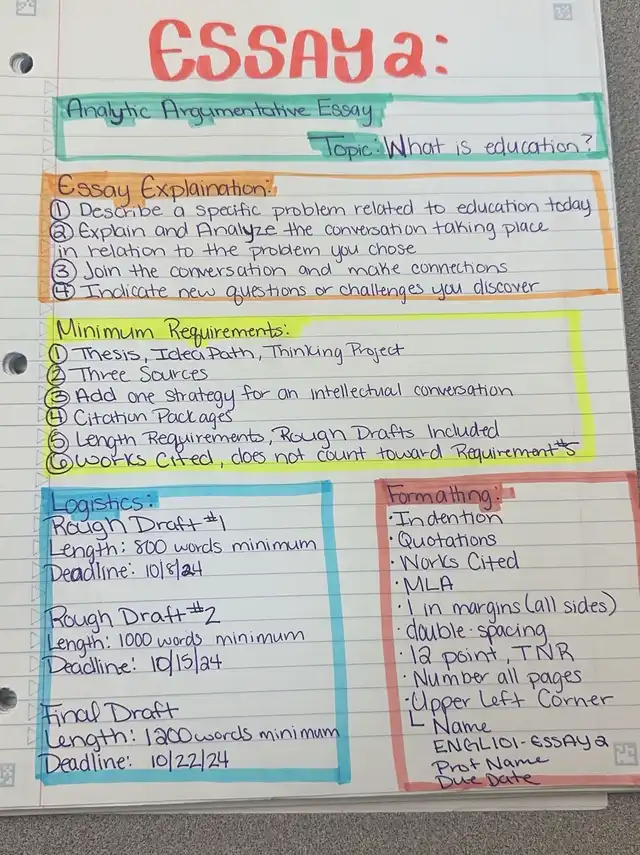 ESSAY 2:
Analytic Argumentative Essay
Topic: What is education?
Essay Explaination:
① Describe a specific problem related to education today
② Explain and Analyze the conversation taking place
in relation to the problem you chose
③ Join the conversation and make connections
④ Indicate new questions or challenges you discover
Minimum Requirements:
① Thesis, Idea Path, Thinking Project
② Three Sources
③ Add one strategy for an intellectual conversation
④ Citation Packages
⑤ Length Requirements, Rough Drafts Included
⑥ Works Cited, does not count toward Requirement #5
Logistics:
Rough Draft #1
Length: 800 words minimum
Deadline: 10/8/24
Rough Draft #2
Length: 1000 words minimum
Deadline: 10/15/24
Final Draft
Length: 1200 words minimum
Deadline: 10/22/24
Formatting:
· Indention
· Quotations
· Works Cited
· MLA
· 1 in margins (all sides)
· double-spacing
· 12 point, TNR
· Number all pages
· Upper Left Corner
└ Name
ENGL101-ESSAY 2
Prof Name
Due Date